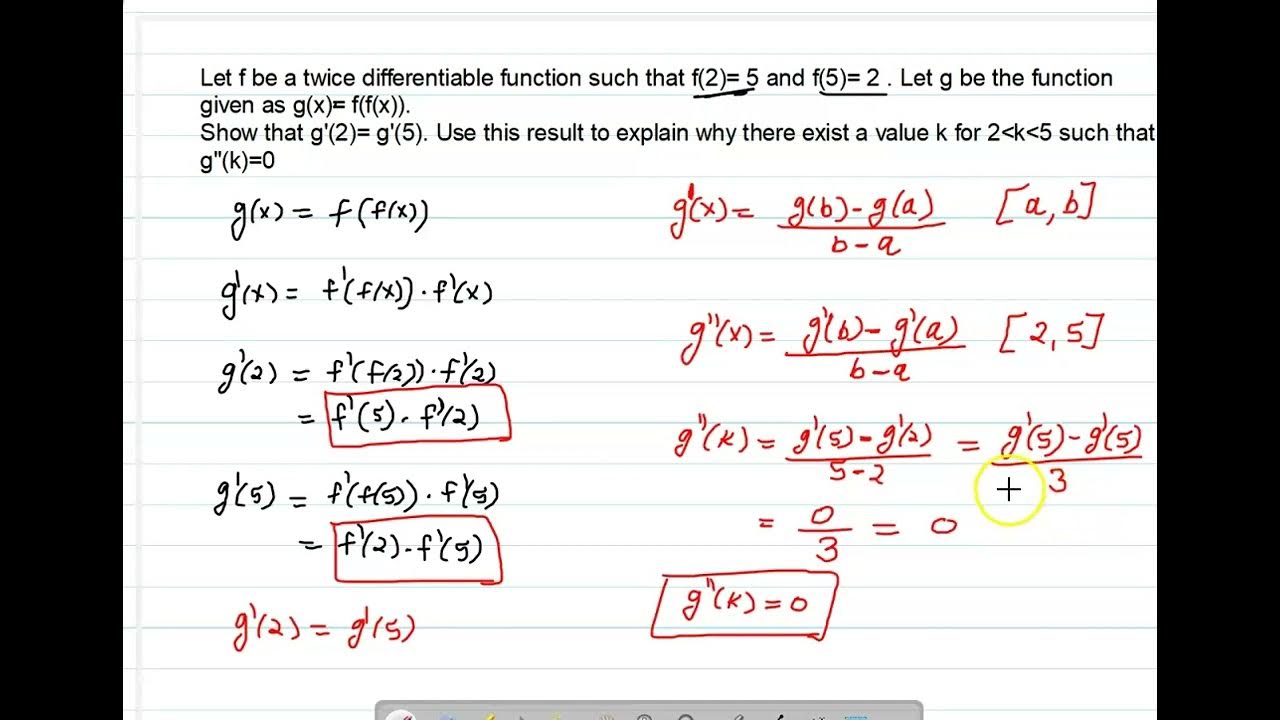 Let f be a twice differentiable function such that f(2)= 5 and f(5)= 2 . Let g be the function
given as g(x)= f(f(x)).
Show that g'(2)= g'(5). Use this result to explain why there exist a value k for 2<k<5 such that
g"(k)=0
g(x) = f(f(x))
g'(x) = f'(f(x)) · f'(x)
g'(2) = f'(f(2)) · f'(2)
= f'(5) · f'(2)
g'(5) = f'(f(5)) · f'(5)
= f'(2) · f'(5)
g'(2) = g'(5)
g'(x) = g(b) - g(a) / b - a [a, b]
g''(x) = g'(b) - g'(a) / b - a [2, 5]
g''(k) = g'(5) - g'(2) / 5 - 2 = g'(5) - g'(5) / 3
= 0 / 3 = 0
g''(k) = 0